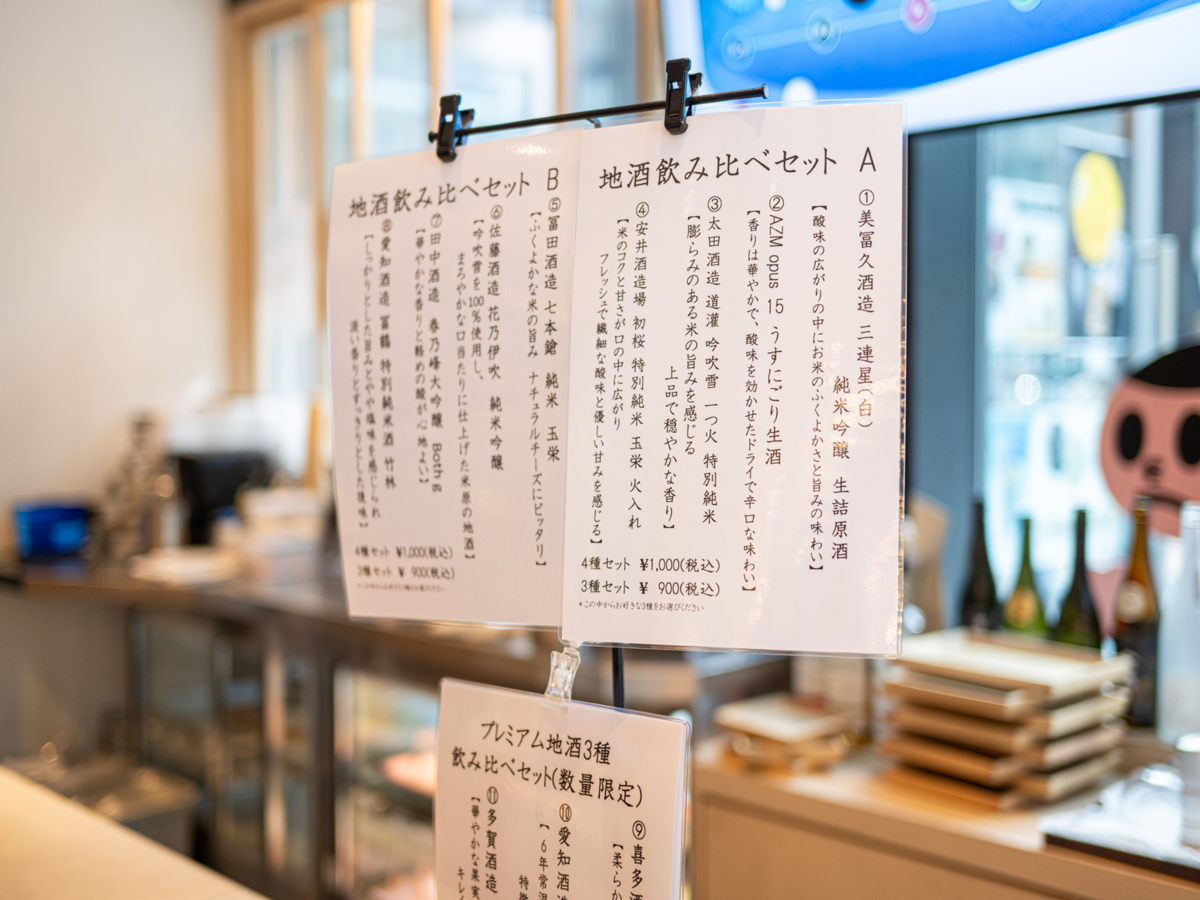 地酒飲み比べセット A
①美冨久酒造 三連星(白)
純米吟醸 生詰原酒
【酸味の広がりの中にお米のふくよかさと旨みの味わい】
②AZM opus 15 うすにごり生酒
【香りは華やかで、酸味を効かせたドライで辛口な味わい】
③太田酒造 道灌 吟吹雪 一つ火 特別純米
【膨らみのある米の旨みを感じる
上品で穏やかな香り】
④安井酒造場 初桜 特別純米 玉栄 火入れ
【米のコクと甘さが口の中に広がり
フレッシュで繊細な酸味と優しい甘みを感じる】
4種セット ¥1,000(税込)
3種セット ¥ 900(税込)
*この中からお好きな3種をお選びください
地酒飲み比べセット B
⑤冨田酒造 七本鎗 純米 玉栄
【ふくよかな米の旨み ナチュラルチーズにピッタリ】
⑥佐藤酒造 花乃伊吹 純米吟醸
【吟吹雪を100%使用し、
まろやかな口当たりに仕上げた米原の地酒】
⑦田中酒造 春乃峰大吟醸 Both g
【華やかな香りと軽めの酸が心地よい】
⑧愛知酒造 冨鶴 特別純米酒 竹林
【しっかりとした旨みとやや塩味を感じられ
淡い香りとすっきりとした後味】
4種セット ¥1,000(税込)
3種セット ¥ 900(税込)
プレミアム地酒3種
飲み比べセット(数量限定)
⑨喜多酒
【柔らか
⑩愛知酒
【6年常温
特徴
⑪多賀酒造
【華やかな果実
キレイ